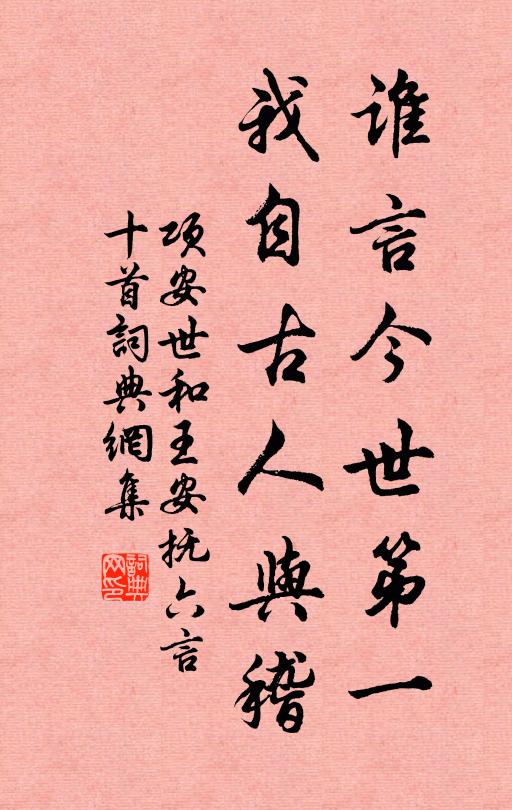 谁言今世第一
我自古人與稽
项安世和王安抚六言
十首詞典網集
詞典网印